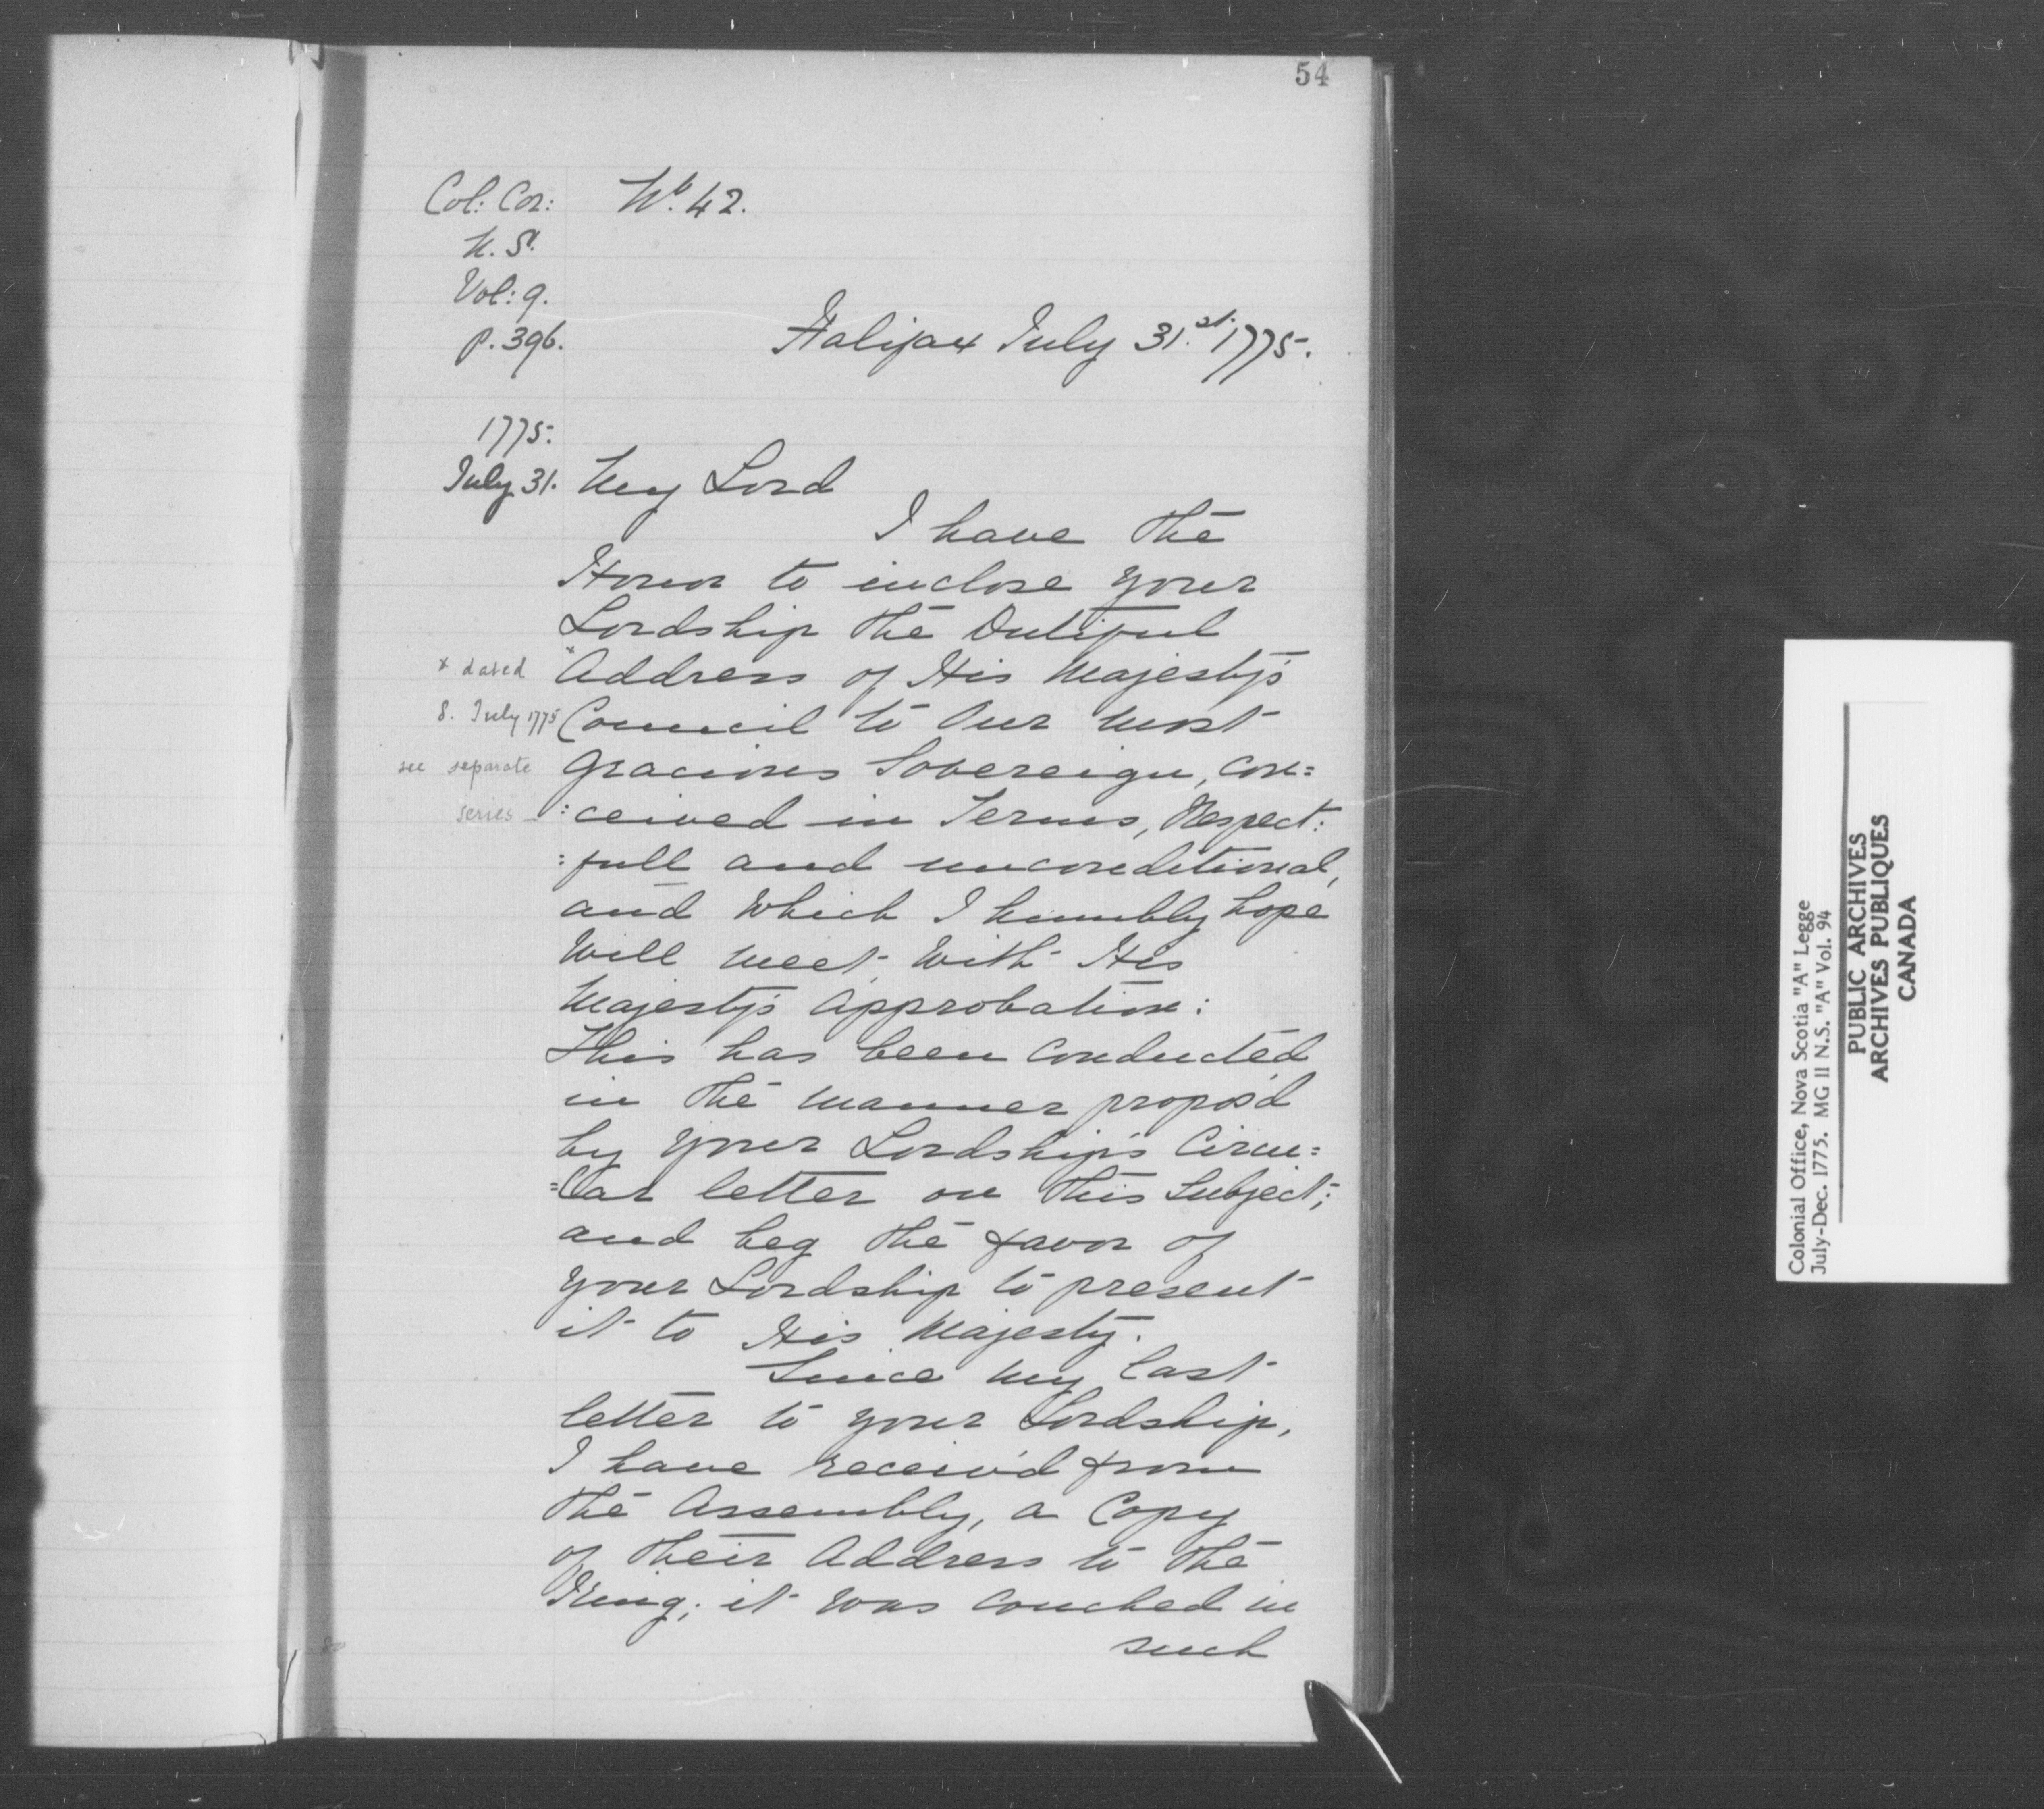 54
Col: Cor:
N. S.
Vol: 9.
p. 396.
No. 42.
Halifax July 31.st 1775.
1775.
July 31.
My Lord
I have the
Honor to inclose your
Lordship the Dutiful
* Address of His Majesty's
Council to Our most
Gracious Sovereign, con=
=ceived in Terms, Respect=
=full and unconditional,
and which I humbly hope
Will meet With His
Majesty's Approbation:
This has been Conducted
in the manner propos'd
by your Lordship's Circu=
=lar letter on this Subject;
and beg the favor of
your Lordship to present
it to His Majesty.
Since my last
letter to your Lordship,
I have receiv'd from
the Assembly, a Copy
of their Address to the
King; it was couched in
such
* dated
8. July 1775
see separate
series
Colonial Office, Nova Scotia "A" Legge
July-Dec. 1775. MG 11 N.S. "A" Vol. 94
PUBLIC ARCHIVES
ARCHIVES PUBLIQUES
CANADA